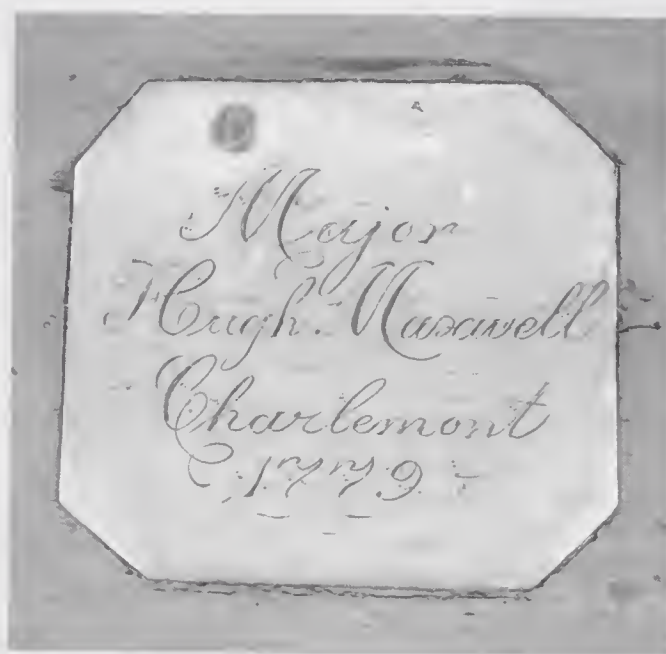 Major
Hugh Maxwell
Charlemont
1779